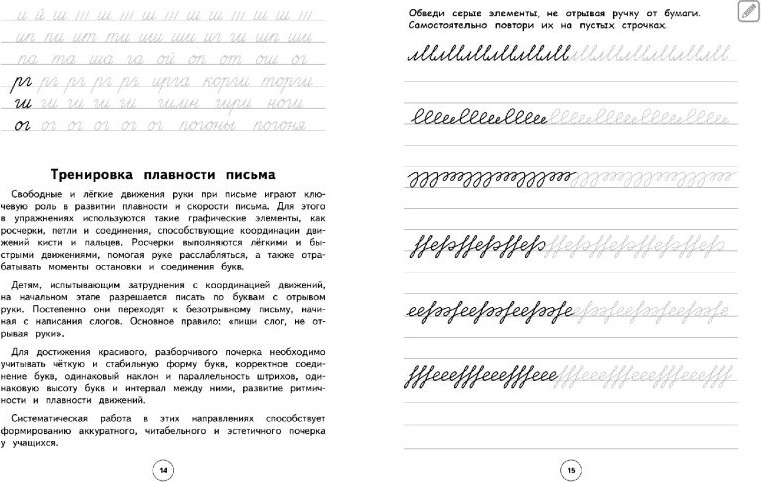 и й ш
ип пи ит ти иш ши иг ги шп ши
па та ша га ой оп от ош ог
рг рг рг рг рг рг ирга корги торги
ги ги ги ги ги ги гилин гири ноги
ог ог ог ог ог ог погоны погоня
Тренировка плавности письма
Свободные и лёгкие движения руки при письме играют клю-
чевую роль в развитии плавности и скорости письма. Для этого
в упражнениях используются такие графические элементы, как
росчерки, петли и соединения, способствующие координации дви-
жений кисти и пальцев. Росчерки выполняются лёгкими и бы-
стрыми движениями, помогая руке расслабляться, а также отра-
батывать моменты остановки и соединения букв.
Детям, испытывающим затруднения с координацией движений,
на начальном этапе разрешается писать по буквам с отрывом
руки. Постепенно они переходят к безотрывному письму, начи-
ная с написания слогов. Основное правило: «пиши слог, не от-
рывая руки».
Для достижения красивого, разборчивого почерка необходимо
учитывать чёткую и стабильную форму букв, корректное соеди-
нение букв, одинаковый наклон и параллельность штрихов, оди-
наковую высоту букв и интервал между ними, развитие ритмич-
ности и плавности движений.
Систематическая работа в этих направлениях способствует
формированию аккуратного, читабельного и эстетичного почерка
у учащихся.
14
Обведи серые элементы, не отрывая ручку от бумаги.
Самостоятельно повтори их на пустых строчках.
15